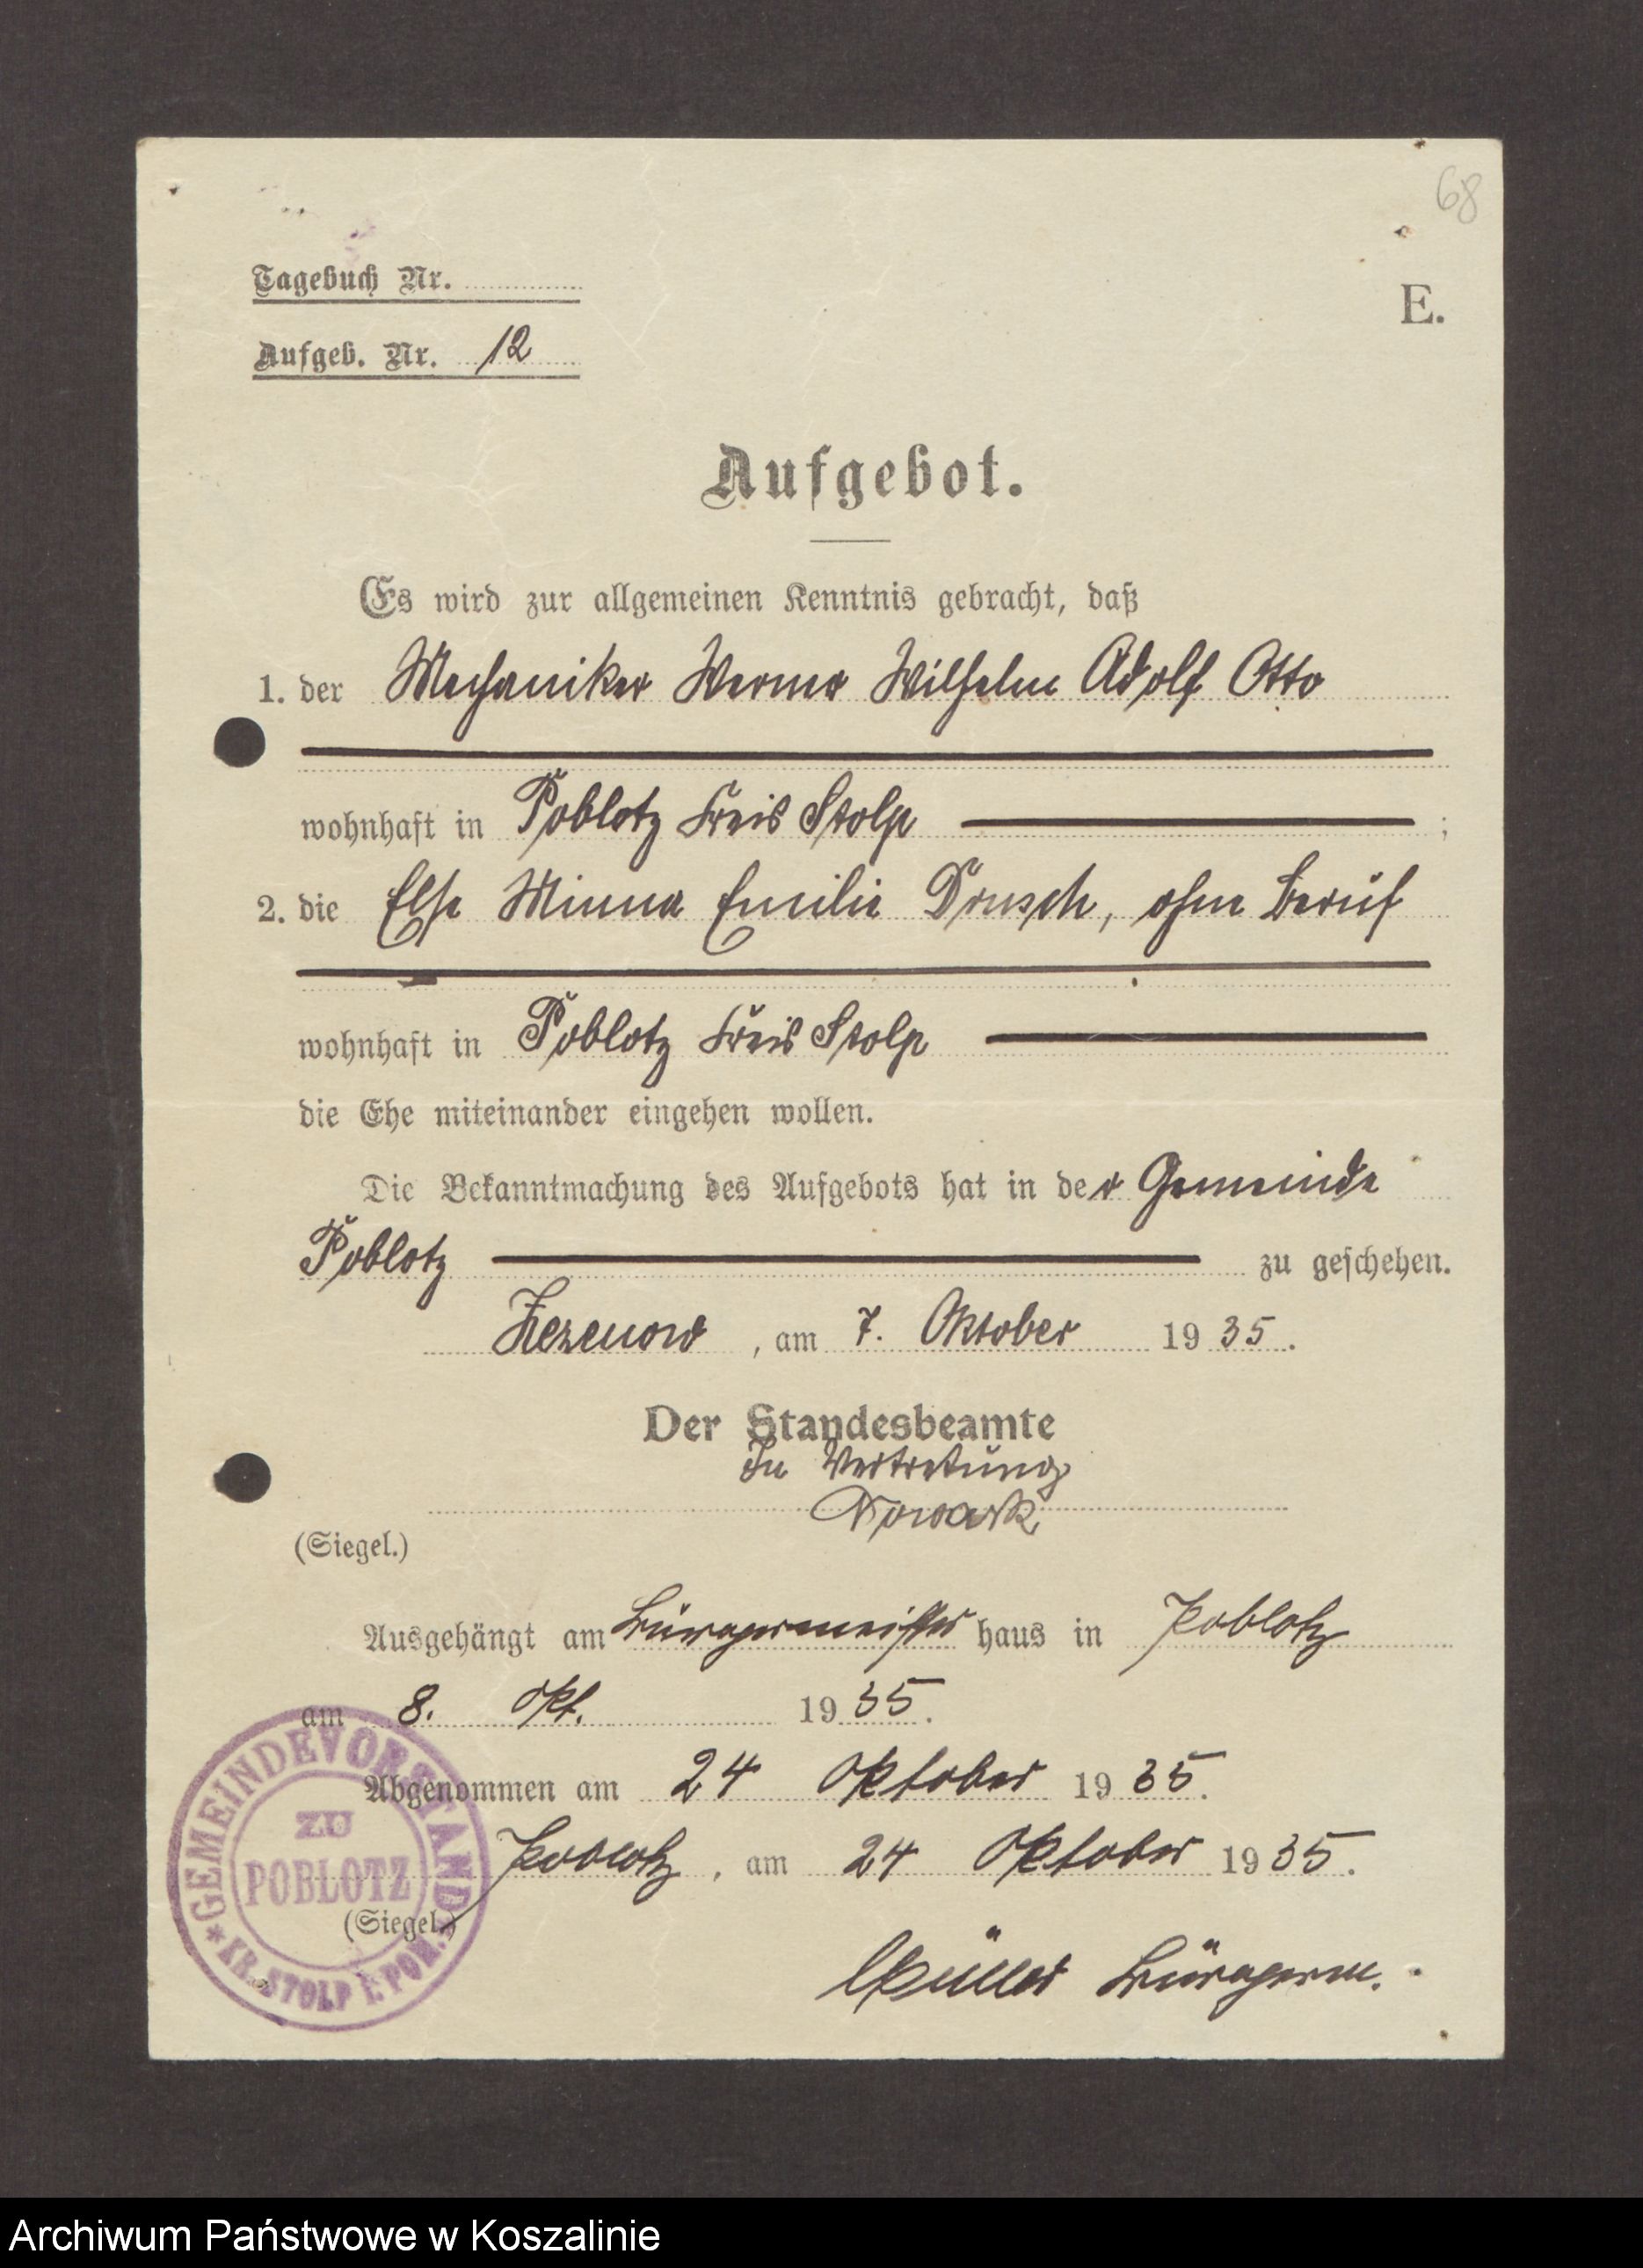 68
Tagebuch Nr.
E.
Aufgeb. Nr. 12
Aufgebot.
Es wird zur allgemeinen Kenntnis gebracht, daß
1. der Mechaniker Werner Wilhelm Adolf Otto
wohnhaft in Poblotz Kreis Stolp ;
2. die Else Minna Emilie Drusch, ohne Beruf
wohnhaft in Poblotz Kreis Stolp
die Ehe miteinander eingehen wollen.
Die Bekanntmachung des Aufgebots hat in der Gemeinde
Poblotz zu geschehen.
Zezenow, am 7. Oktober 1935.
Der Standesbeamte
In Vertretung
Nowack
(Siegel.)
Ausgehängt am Bürgermeister haus in Poblotz
am 8. Okt. 1935.
Abgenommen am 24 Oktober 1935.
Poblotz, am 24 Oktober 1935.
(Siegel.)
GEMEINDEVORSTAND
ZU
POBLOTZ
* KR. STOLP I. POM. *
Müller Bürgerm.
Archiwum Państwowe w Koszalinie